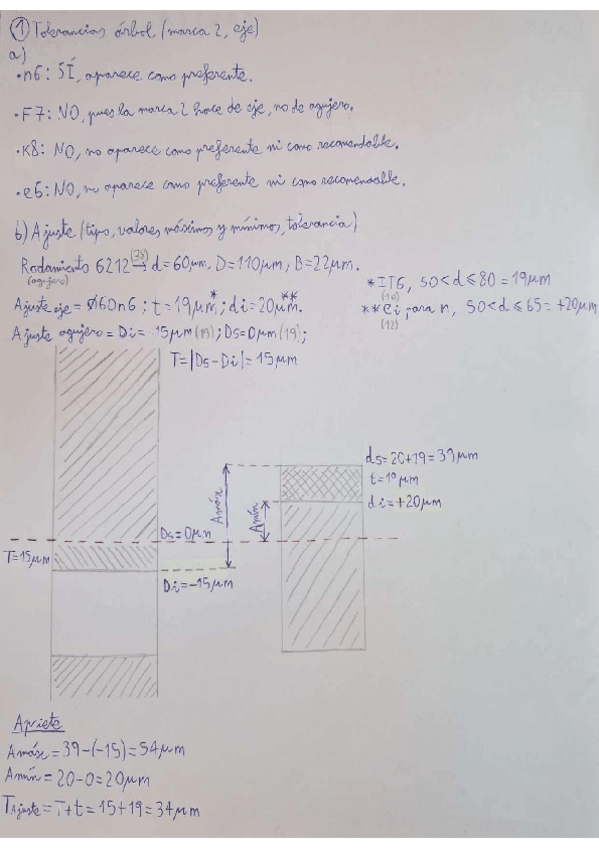 ① Tolerancias árbol (marca 2, eje)
a)
• n6: SÍ, aparece como preferente.
• F7: NO, pues la marca 2 hace de eje, no de agujero.
• K8: NO, no aparece como preferente ni como recomendable.
• e6: NO, no aparece como preferente ni como recomendable.
b) Ajuste (tipo, valores máximos y mínimos, tolerancia)
Rodamiento 6212 → d = 60μm, D = 110μm, B = 22μm.
(agujero)
* IT6, 50 < d ≤ 80 = 19μm
(10)
Ajuste eje = Ø60n6 ; t = 19μm*; di = 20μm**.
** ei para n, 50 < d ≤ 65 = +20μm
(12)
Ajuste agujero = Di = -15μm (19) ; Ds = 0μm (19) ;
T = |Ds - Di| = 15μm
ds = 20+19 = 39μm
t = 19μm
di = +20μm
Amáx
Amín
Ds = 0μm
T = 15μm
Di = -15μm
Apriete
Amáx = 39-(-15) = 54μm
Amín = 20-0 = 20μm
TAjuste = T+t = 15+19 = 34μm